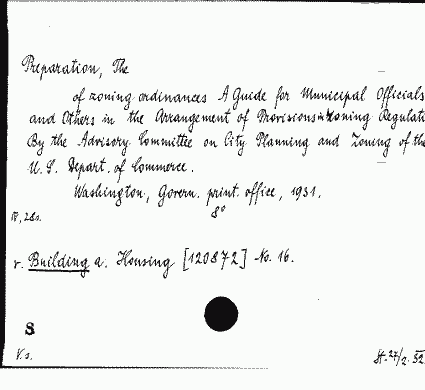 Preparation, The
of zoning ordinances A Guide for Municipal Officials
and Others in the Arrangement of Provisions in Zoning Regulati
By the Advisory Committee on City Planning and Zoning of the
U.S. Depart. of Commerce.
Washington, Govern. print. office, 1931.
8°
IV, 28s.
v. Building a. Housing [120872] No. 16.
8
V.s.
St. 27/2. 52